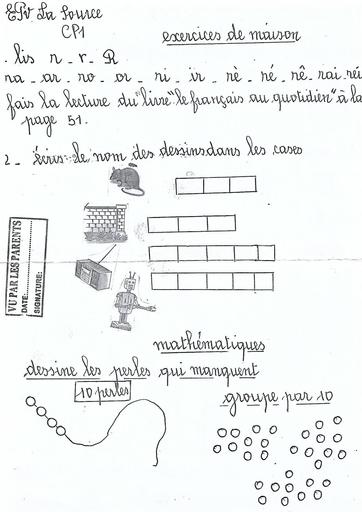 EPV La Source
CP1
exercices de maison
. lis r _ r _ R
ra _ ar _ ro _ or _ ri _ ir _ rè _ ré _ rê _ rai _ rei
fais la lecture du "livre" le français au quotidien" à la
page 51.
2 _ écris : le nom des dessins dans les cases
VU PAR LES PARENTS
DATE:
SIGNATURE:
mathématiques
dessine les perles qui manquent
10 perles
groupe par 10